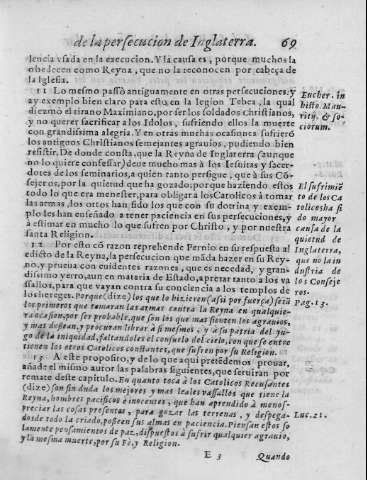 de la persecucion de Inglaterra. 69
lencia vsada en la execucion. Y la causa es, porque muchos la
obedecen como Reyna, que no la reconocen por cabeça de
la Iglesia.
11 Lo mesmo passò antiguamente en otras persecuciones, y
ay exemplo bien claro para esto, en la legion Tebea, la qual
diezmò el tirano Maximiano, por ser los soldados Christianos,
y no querer sacrificar a los Idolos, sufriendo ellos la muerte
con grandissima alegria. Y en otras muchas ocasiones sufrierõ
los antigos Christianos semejantes agrauios, pudiendo bien
resistir. De donde consta, que la Reyna de Inglaterra (aunque
no lo quiere confessar) deue mucho mas à los Iesuitas, y sacer-
dotes de los seminarios, a quien tanto persigue, que à sus Cõ-
sejeros, por la quietud que ha gozado: porque haziendo estos
todo lo que era menester, para obligar à los Catolicos à tomar
las armas, los otros han sido los que con su dotrina y exem-
plo les han enseñado a tener paciencia en sus persecuciones, y
à estimar en mucho lo que sufren por Christo, y por nuestra
santa Religion.
12 Por esto cõ razon reprehende Pernio en su respuesta al
edicto de la Reyna, la persecucion que mãda hazer en su Rey-
no, y prueua con euidentes razones, que es necedad, y gran-
dissimo yerro, aun en materia de Estado, apretar tanto a los va
ssallos, para que vayan contra su conciencia a los templos de
los hereges. Porque (dize) los que lo hizieren (assi por fuerça) serã
los primeros que tomaran las armas contra la Reyna en qualquie-
ra ocasion, por ser probable, que son los que mas sienten los agrauios,
y mas dessean, y procuran librar à si mesmos, y à su patria del yu-
go de la iniquidad, faltandoles el consuelo del cielo, con que se entre
tienen los otros Catolicos constantes, que sufren por su Religion.
13 A este proposito, y de lo que aqui pretẽdemos prouar,
añade el mismo autor las palabras siguientes, que seruiran por
remate deste capitulo. En quanto toca à los Catolicos Recusantes
(dize) son sin duda los mejores y mas leales vassallos que tiene la
Reyna, hombres pacificos è inocentes, que han aprendido à menos-
preciar las cosas presentes, para gozar las eternas, y despega-
dos de todo lo criado, posseen sus almas en paciencia. Piensan estos so
lamente pensamientos de paz, dispuestos à sufrir qualquier agrauio,
y la mesma muerte, por su Fè, y Religion.
E 3 Quando
Eucher. in
histo. Mau-
ritij, & so-
ciorum.
El sufrimiẽ
to de los Ca
tolicos ha si
do mayor
causa de la
quietud de
Inglaterra,
que no la in
dustria de
los Conseje
ros.
Pag. 13.
Luc. 21.